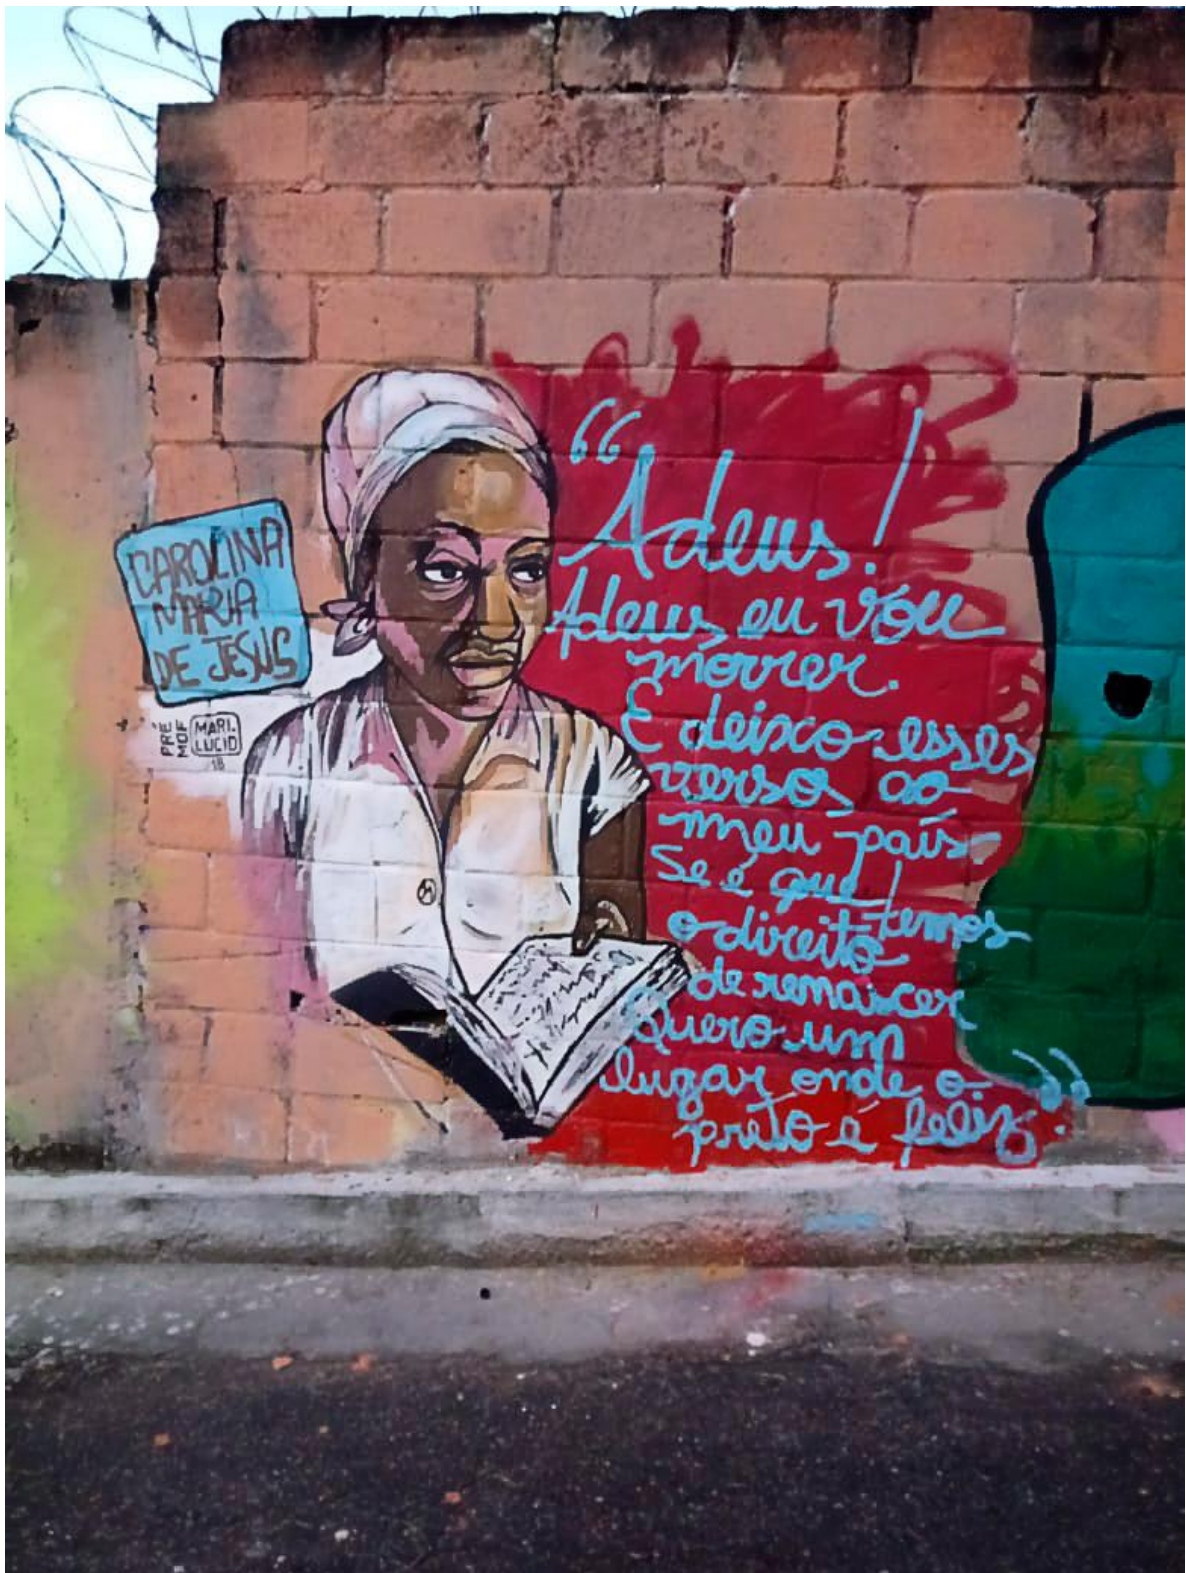 CAROLINA
MARIA
DE JESUS
PRE
MOF
MARI.
LUCIO
18
“Adeus!
Adeus, eu vou
morrer.
E deixo esses
versos ao
meu país
Se é que temos
o direito
de renascer
Quero um
lugar, onde o
preto é feliz.”